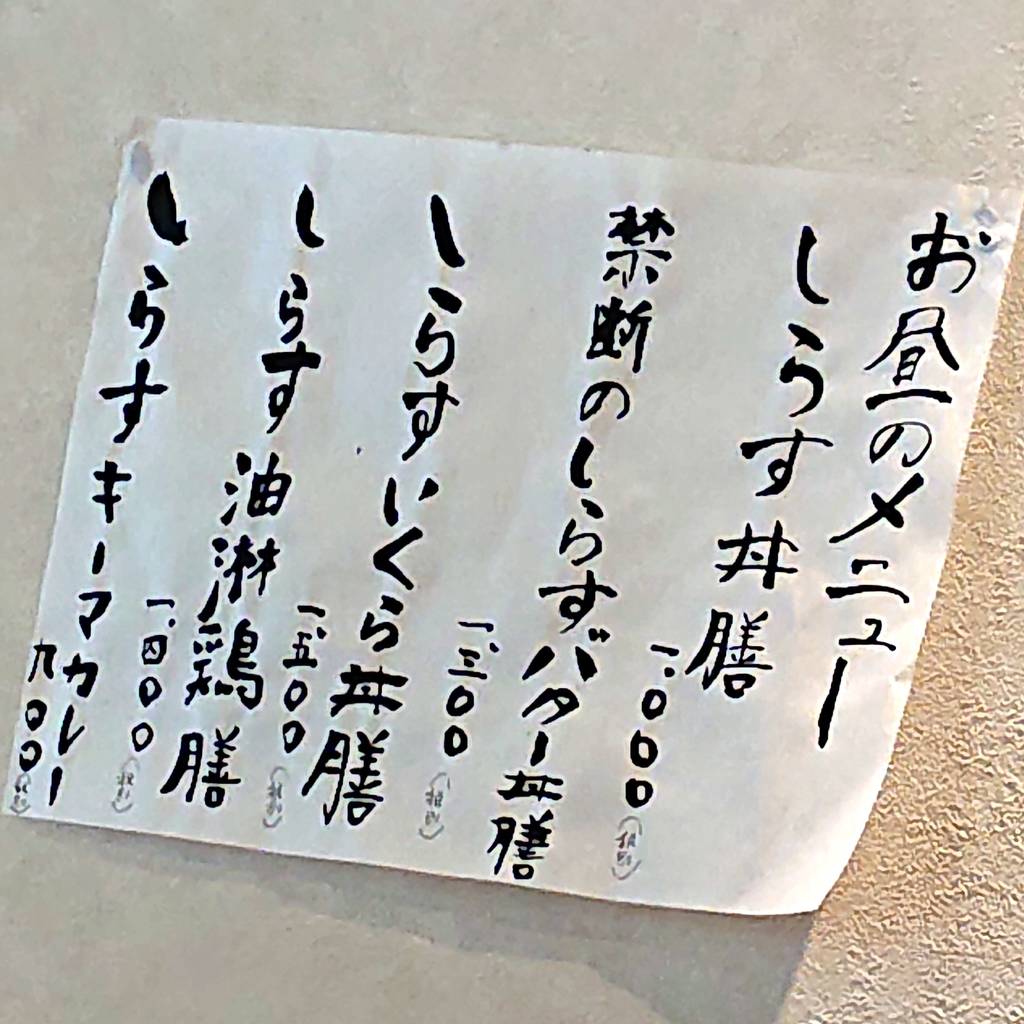 お昼のメニュー
しらす丼膳
一、〇〇〇(税別)
禁断のしらすバター丼膳
一、三〇〇(税別)
しらすいくら丼膳
一、五〇〇(税別)
しらす油淋鶏膳
一、四〇〇(税別)
しらすキーマカレー
九〇〇(税別)